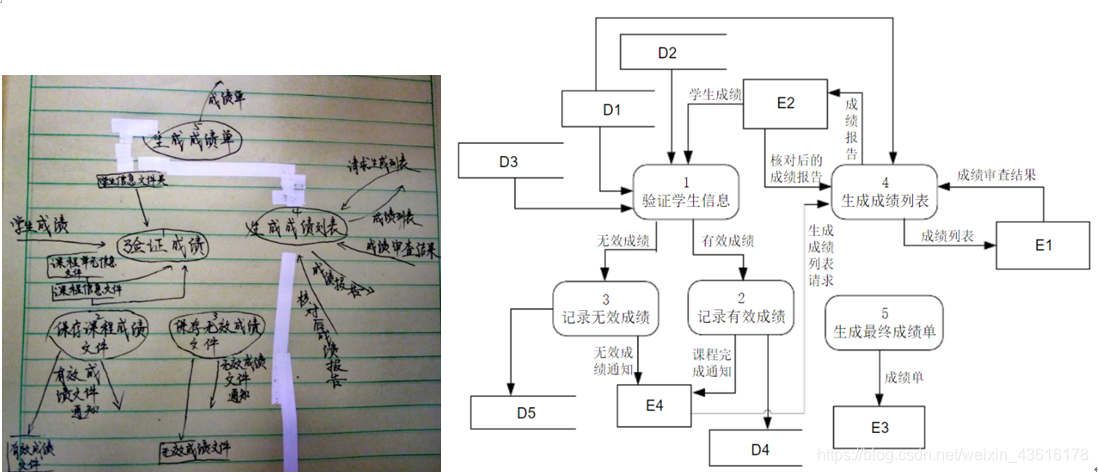 成绩单
5
生成成绩单
学生信息文件夹
请求生成列表
4
生成成绩列表
成绩列表
成绩审查结果
学生成绩
1
验证成绩
课程单元信息
文件
课程信息文件
成绩报告
核对后成绩报告
2
保存课程成绩
文件
3
保存无效成绩
文件
有效成
绩文件
通知
无效成绩
文件
通知
有效成绩
文件
无效成绩文件
D2
D1
D3
学生成绩
E2
成绩报告
核对后的
成绩报告
成绩审查结果
1
验证学生信息
4
生成成绩列表
无效成绩
有效成绩
生成
成绩
列表
请求
成绩列表
E1
3
记录无效成绩
2
记录有效成绩
5
生成最终成绩单
无效成
绩通知
课程完
成通知
成绩单
D5
E4
E3
D4
https://blog.csdn.net/weixin_43616178